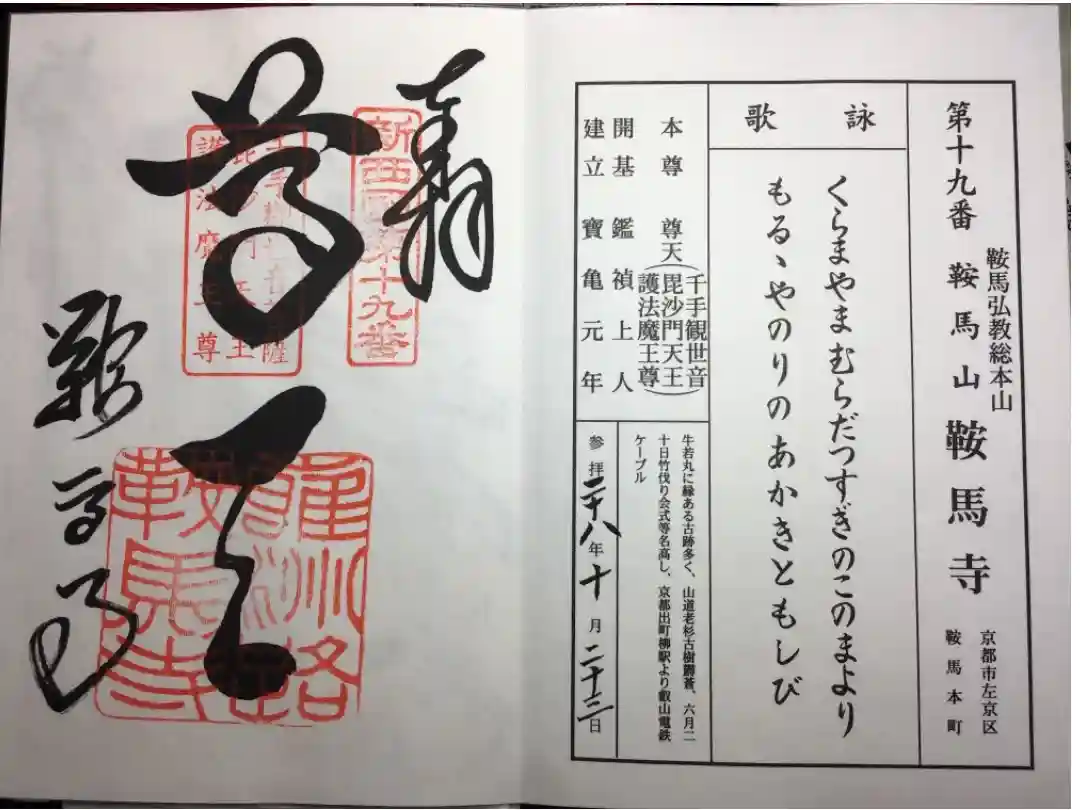 鞍馬弘教総本山
第十九番 鞍馬山 鞍馬寺
京都市左京区
鞍馬本町
詠歌
くらまやまむらだつすぎのこのまより
もるゝやのりのあかきともしび
本尊 尊天(千手観世音
毘沙門天王
護法魔王尊)
開基 鑑禎上人
建立 寶亀元年
牛若丸に縁ある古跡多く、山道老杉古樹欝蒼、六月二
十日竹伐り会式等名高し、京都出町柳駅より叡山電鉄
ケーブル
参拝二十八年十月二十三日
奉拝
新西國第十九番
尊天
護法魔王尊
鞍馬寺
鞍馬寺